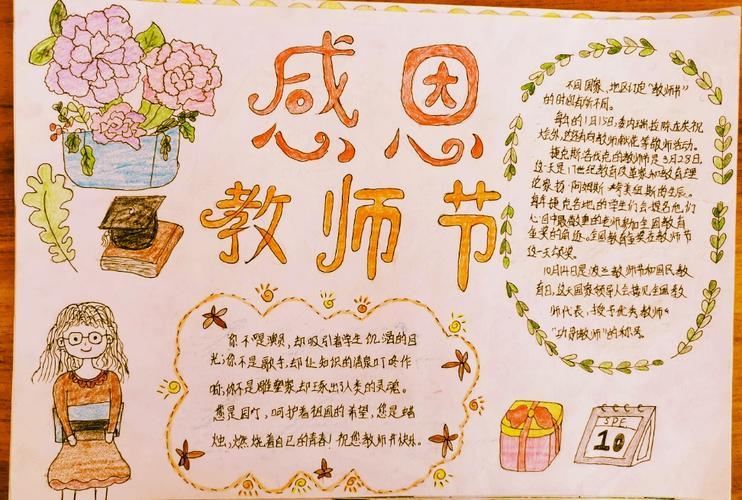 感恩
教师节
不同国家、地区订定“教师节”
的时间有所不同。
每年的1月15日，委内瑞拉除在庆祝
捷克斯洛伐克的教师节是3月28日，
这天是17世纪教育改革家和教育理
论家扬·阿姆斯·夸美纽斯的生辰。
每年捷克各地的学生们会提名他们
心目中最敬重的老师参加全国教育
金奖的角逐，全国教育金奖在教师节
这一天颁奖。
10月14日是波兰教师节和国民教
育日，这天国家领导人会接见全国教
师代表，授予优秀教师
“功勋教师”的称号。
你不是演员，却吸引着学生饥渴的目
光；你不是歌手，却让知识的清泉叮咚作
响，你不是雕塑家，却琢出人类的灵魂。
您是园丁，呵护着祖国的希望，您是蜡
烛，燃烧着自己的青春！祝您教师节快乐。
SPE
10